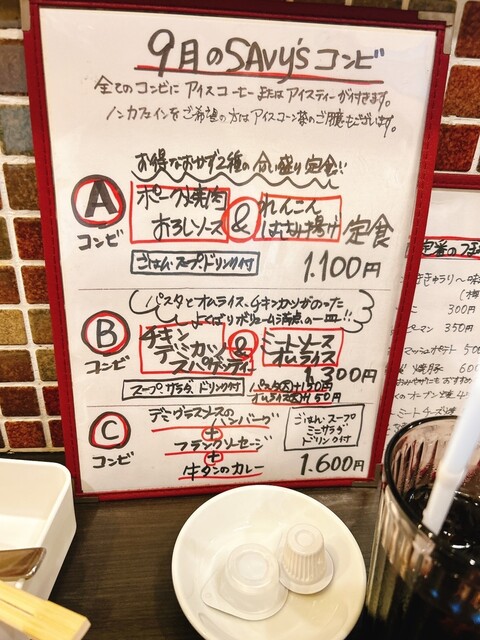 9月のSAVy'sコンビ
全てのコンビに アイスコーヒーまたはアイスティーが付きます。
ノンカフェインをご希望の方はアイスコーン茶のご用意もございます。
お得なおかず2種の合い盛り定食!!
A
コンビ
ポーク焼肉
おろしソース
&
れんこん
はさみ揚げ
定食
ごはん・スープ・ドリンク付
1.100円
パスタとオムライス、チキンカツがのった
よくばりボリューム満点の一皿!!
B
コンビ
チキン
デミカツ
スパゲッティ
&
ミートソース
オムライス
1.300円
スープ サラダ、ドリンク付
パスタ大+150円
オムライス大+50円
C
コンビ
デミグラスソースの
ハンバーグ
+
フランクソーセージ
+
牛タンのカレー
ごはん・スープ
ミニサラダ
ドリンク付
1.600円
きゅうり〜
300円
ーマン 350円
マッシュポテト 500
焼豚 600